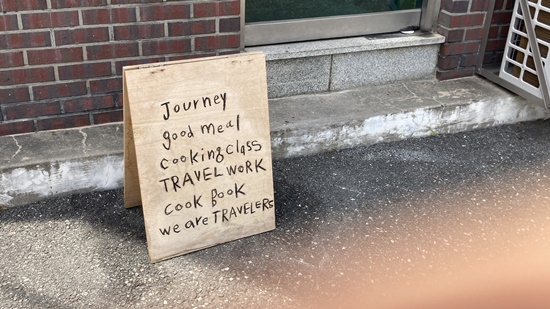 Journey
good meal
cooking class
TRAVEL WORK
cook Book
we are TRAVELERS